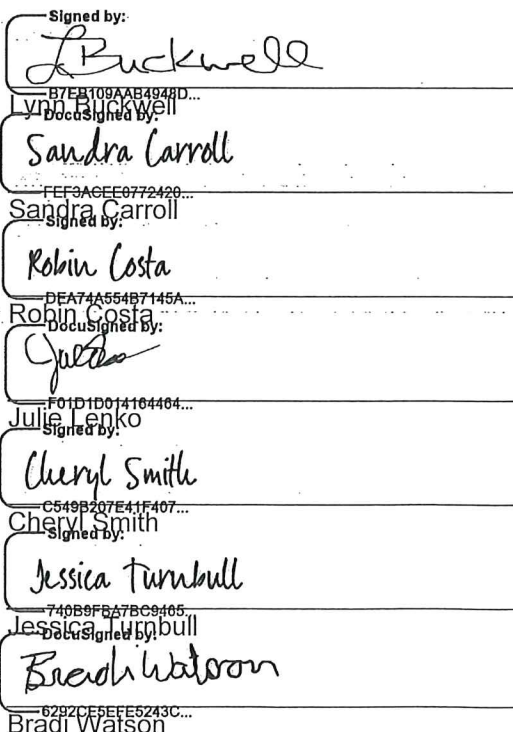 Signed by:
L Buckwell
B7EB109AAB4948D...
Lynn Buckwell
DocuSigned by:
Sandra Carroll
FEF3ACEE0772420...
Sandra Carroll
Signed by:
Robin Costa
DEA74A554B7145A...
Robin Costa
DocuSigned by:
F01D1D014164464...
Julie Lenko
Signed by:
Cheryl Smith
C549B207E41F407...
Cheryl Smith
Signed by:
Jessica Turnbull
740B9FBA7BC9465...
Jessica Turnbull
DocuSigned by:
Watson
6292CE5EFE5243C...
Bradi Watson